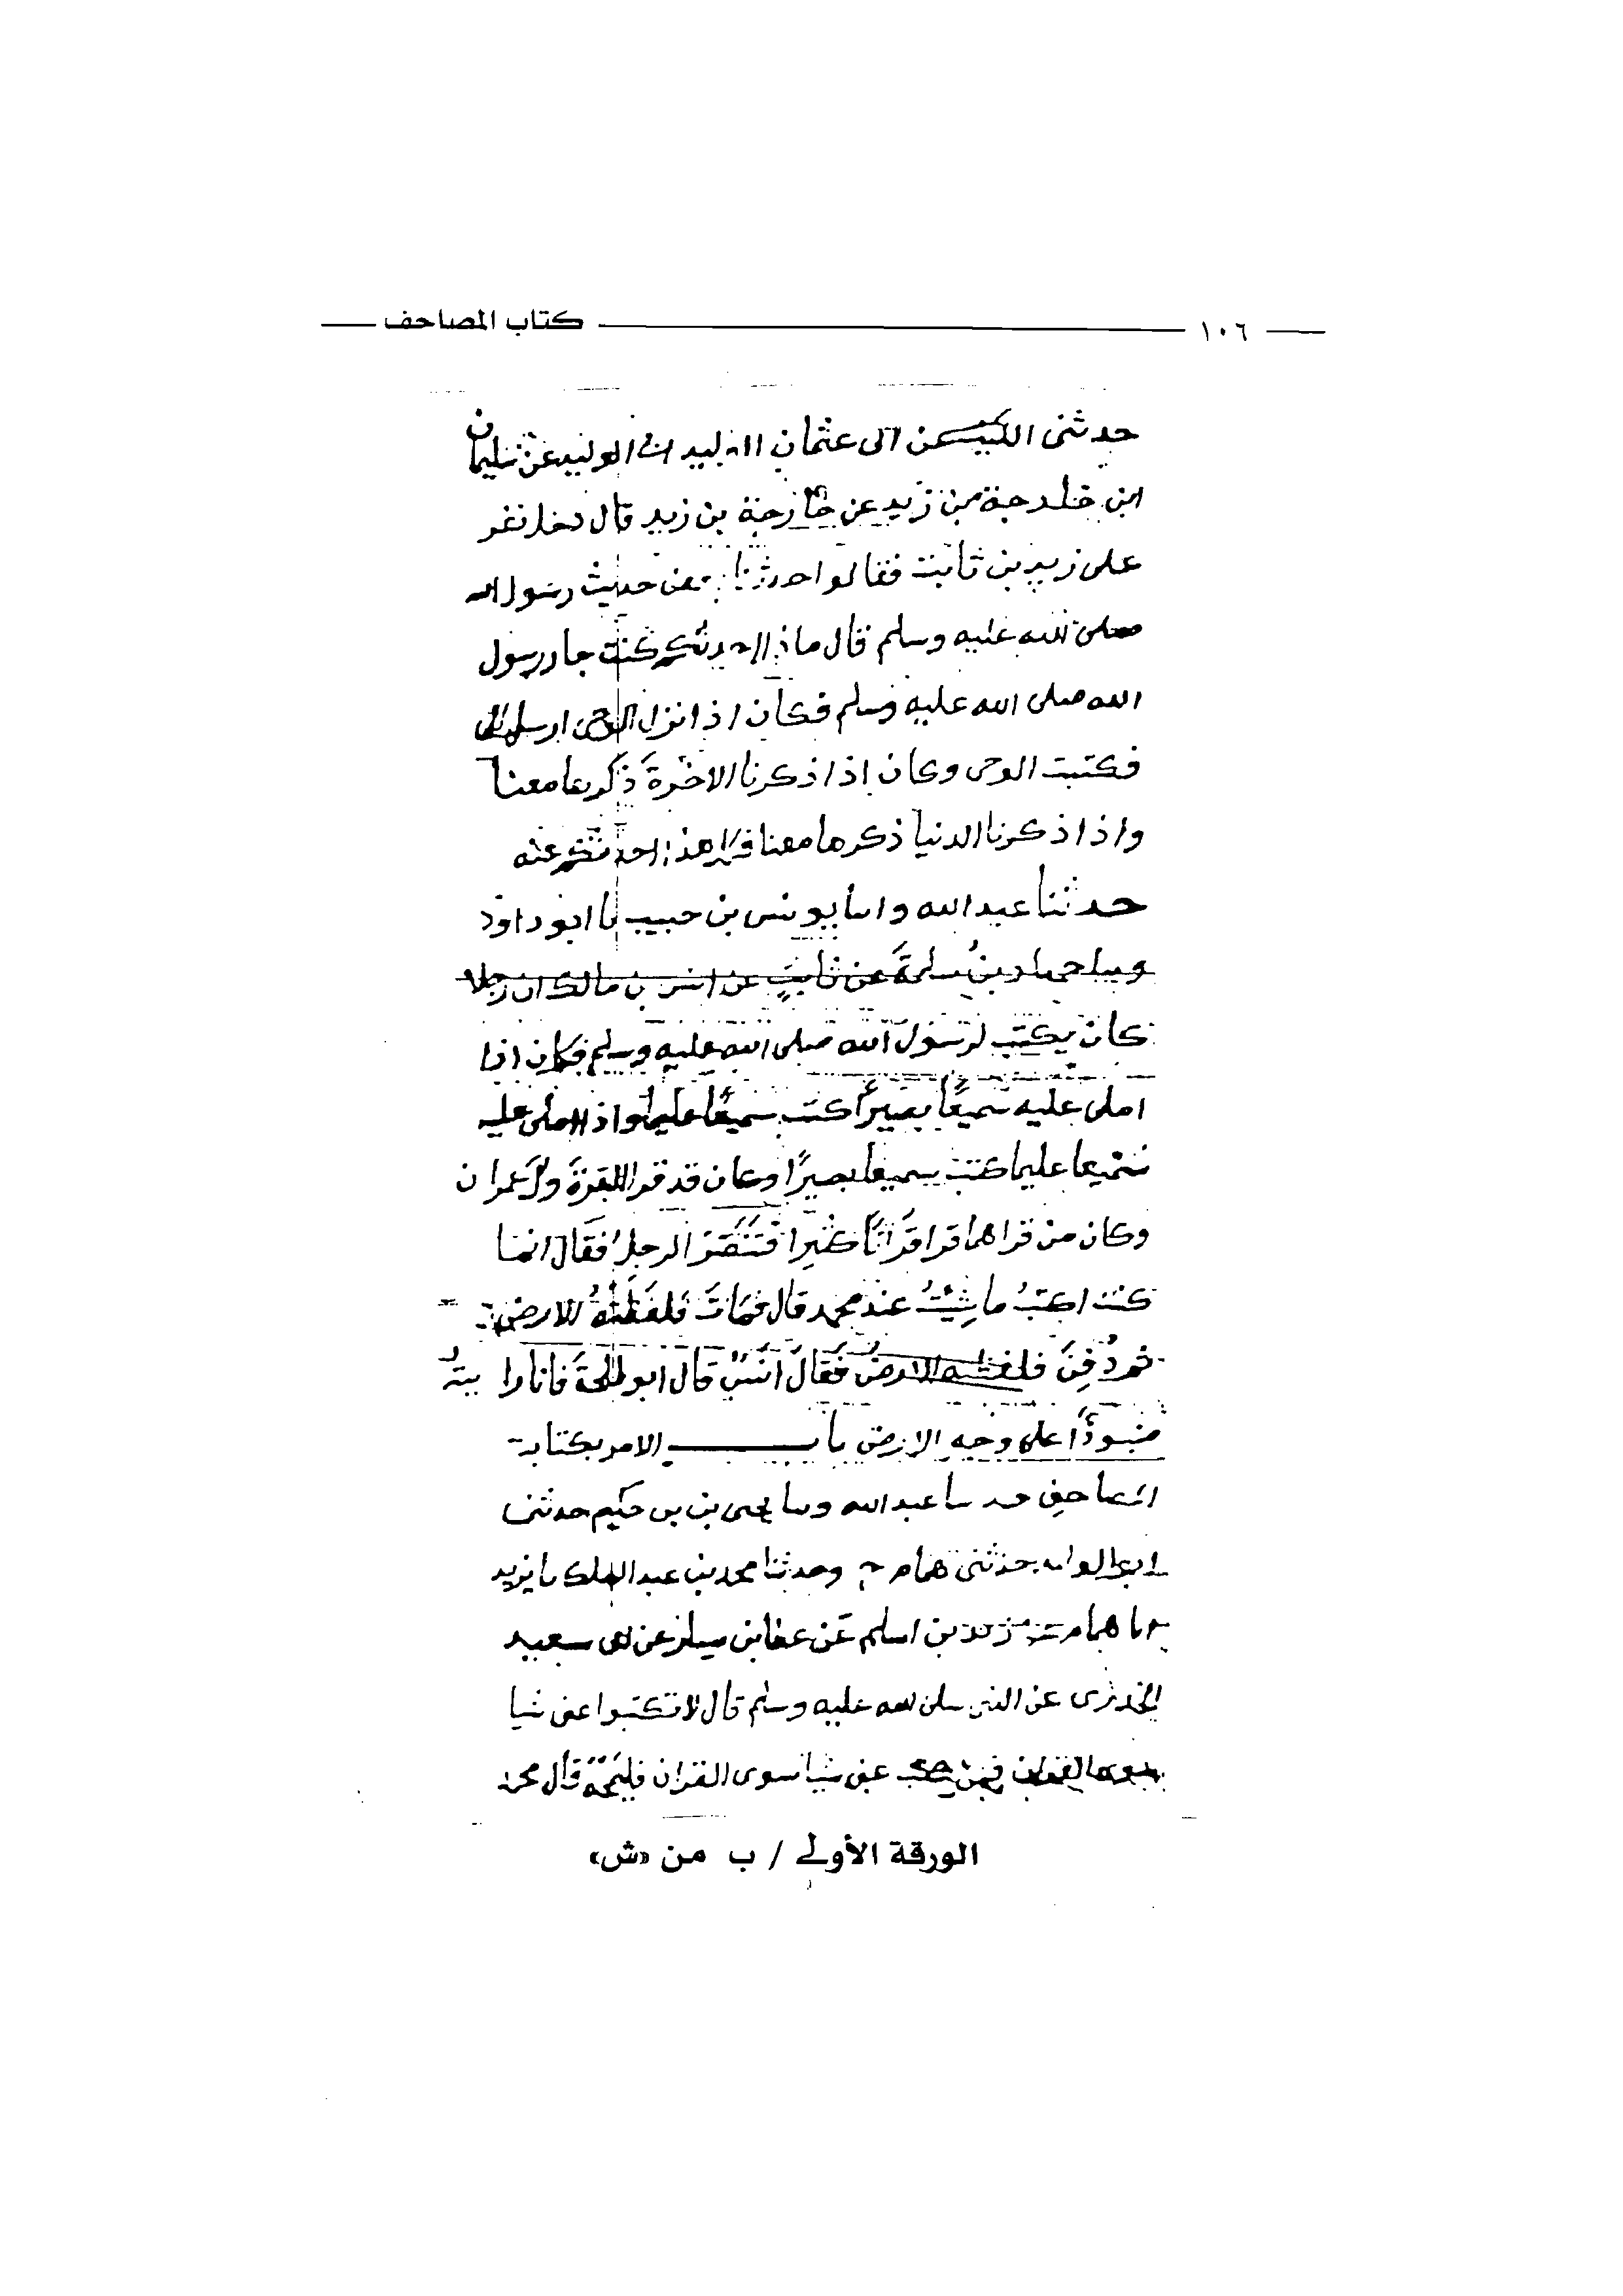 ١٠٦ كتاب المصاحف
حدثنى الليث عن ابى عثمان الوليد ابن ابى الوليد عن سليمان
ابن خارجة بن زيد عن خارجة بن زيد قال دخل نفر
على زيد بن ثابت فقالوا حدثنا بعض حديث رسول الله
صلى الله عليه وسلم قال ماذا احدثكم كنت جار رسول
الله صلى الله عليه وسلم فكان اذا نزل الوحى ارسل الى
فكتبت الوحى وكان اذا ذكرنا الاخرةَ ذكرها معنا
واذا ذكرنا الدنيا ذكرها معنا فكل هذا احدثكم عنه
حدثنا عبد الله وانا يونس بن حبيب نا ابو داود
حماد بنُ سلمةَ عن ثابتٍ عن انس بن مالك ان رجلا
كان يكتب لرسول الله صلى الله عليه وسلم فكان اذا
املى عليه سميعًا بصيرًا كتب سميعًا عليما واذا املى عليه
سميعا عليما كتب سميعا بصيرًا وكان قد قرا البقرةَ وال عمران
وكان من قراهما قرا قرانًا كثيرا فتنصر الرجلُ فقال انما
كنت اكتبُ ما شئتُ عند محمد قال فمات فلفظتهُ الارض
ثم دُفِنَ فلفظته الارضُ فقالَ انسٌ قال ابو طلحةَ فانا رايتهُ
منبوذًا على وجه الارض باب الامر بكتابة
المصاحف حدثنا عبد الله ونا يحيى بن حكيم حدثنى
ابو الوليد حدثنى همام ح وحدثنا محمد بن عبد الملك نا يزيد
انا همام عن زيد بن اسلم عن عطا بن يسار عن ابى سعيد
الخدرى عن النبى صلى الله عليه وسلم قال لا تكتبوا عنى شيا
سوى القران فمن كتب عنى شيا سوى القران فليمحه قال محمد
الورقة الأولى / ب من «ش»